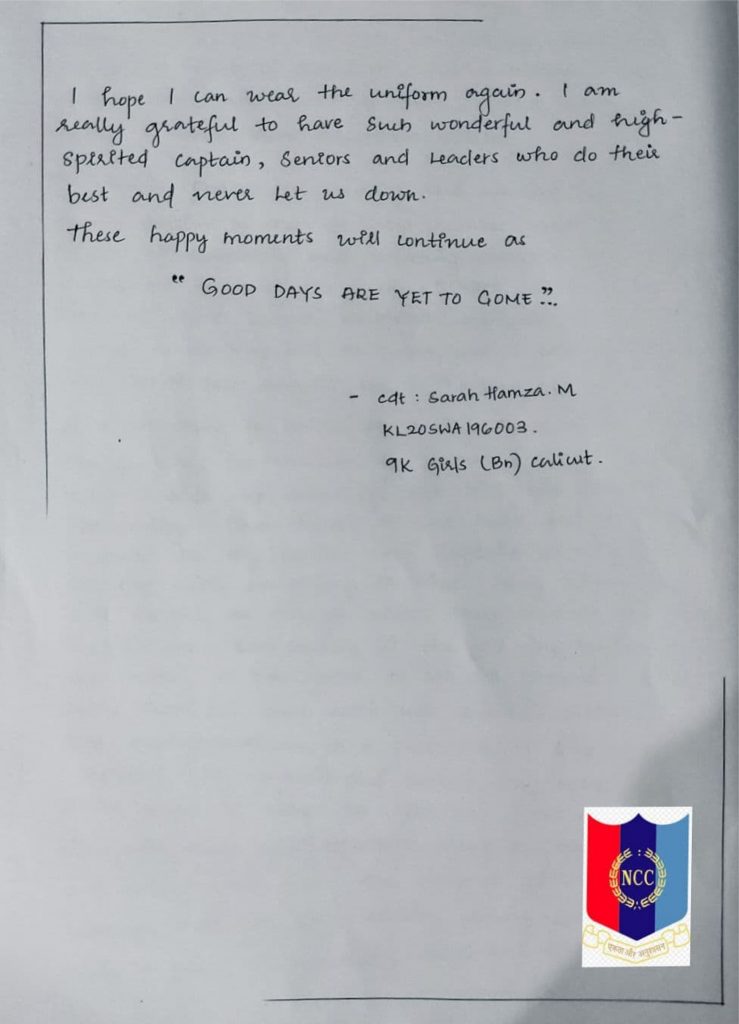 I hope I can wear the uniform again. I am
really grateful to have such wonderful and high-
spirited captain, seniors and leaders who do their
best and never let us down.
These happy moments will continue as
" GOOD DAYS ARE YET TO COME "...
- cdt : Sarah Hamza. M
KL20SWA196003.
9K Girls (Bn) calicut.
NCC
एकता और अनुशासन